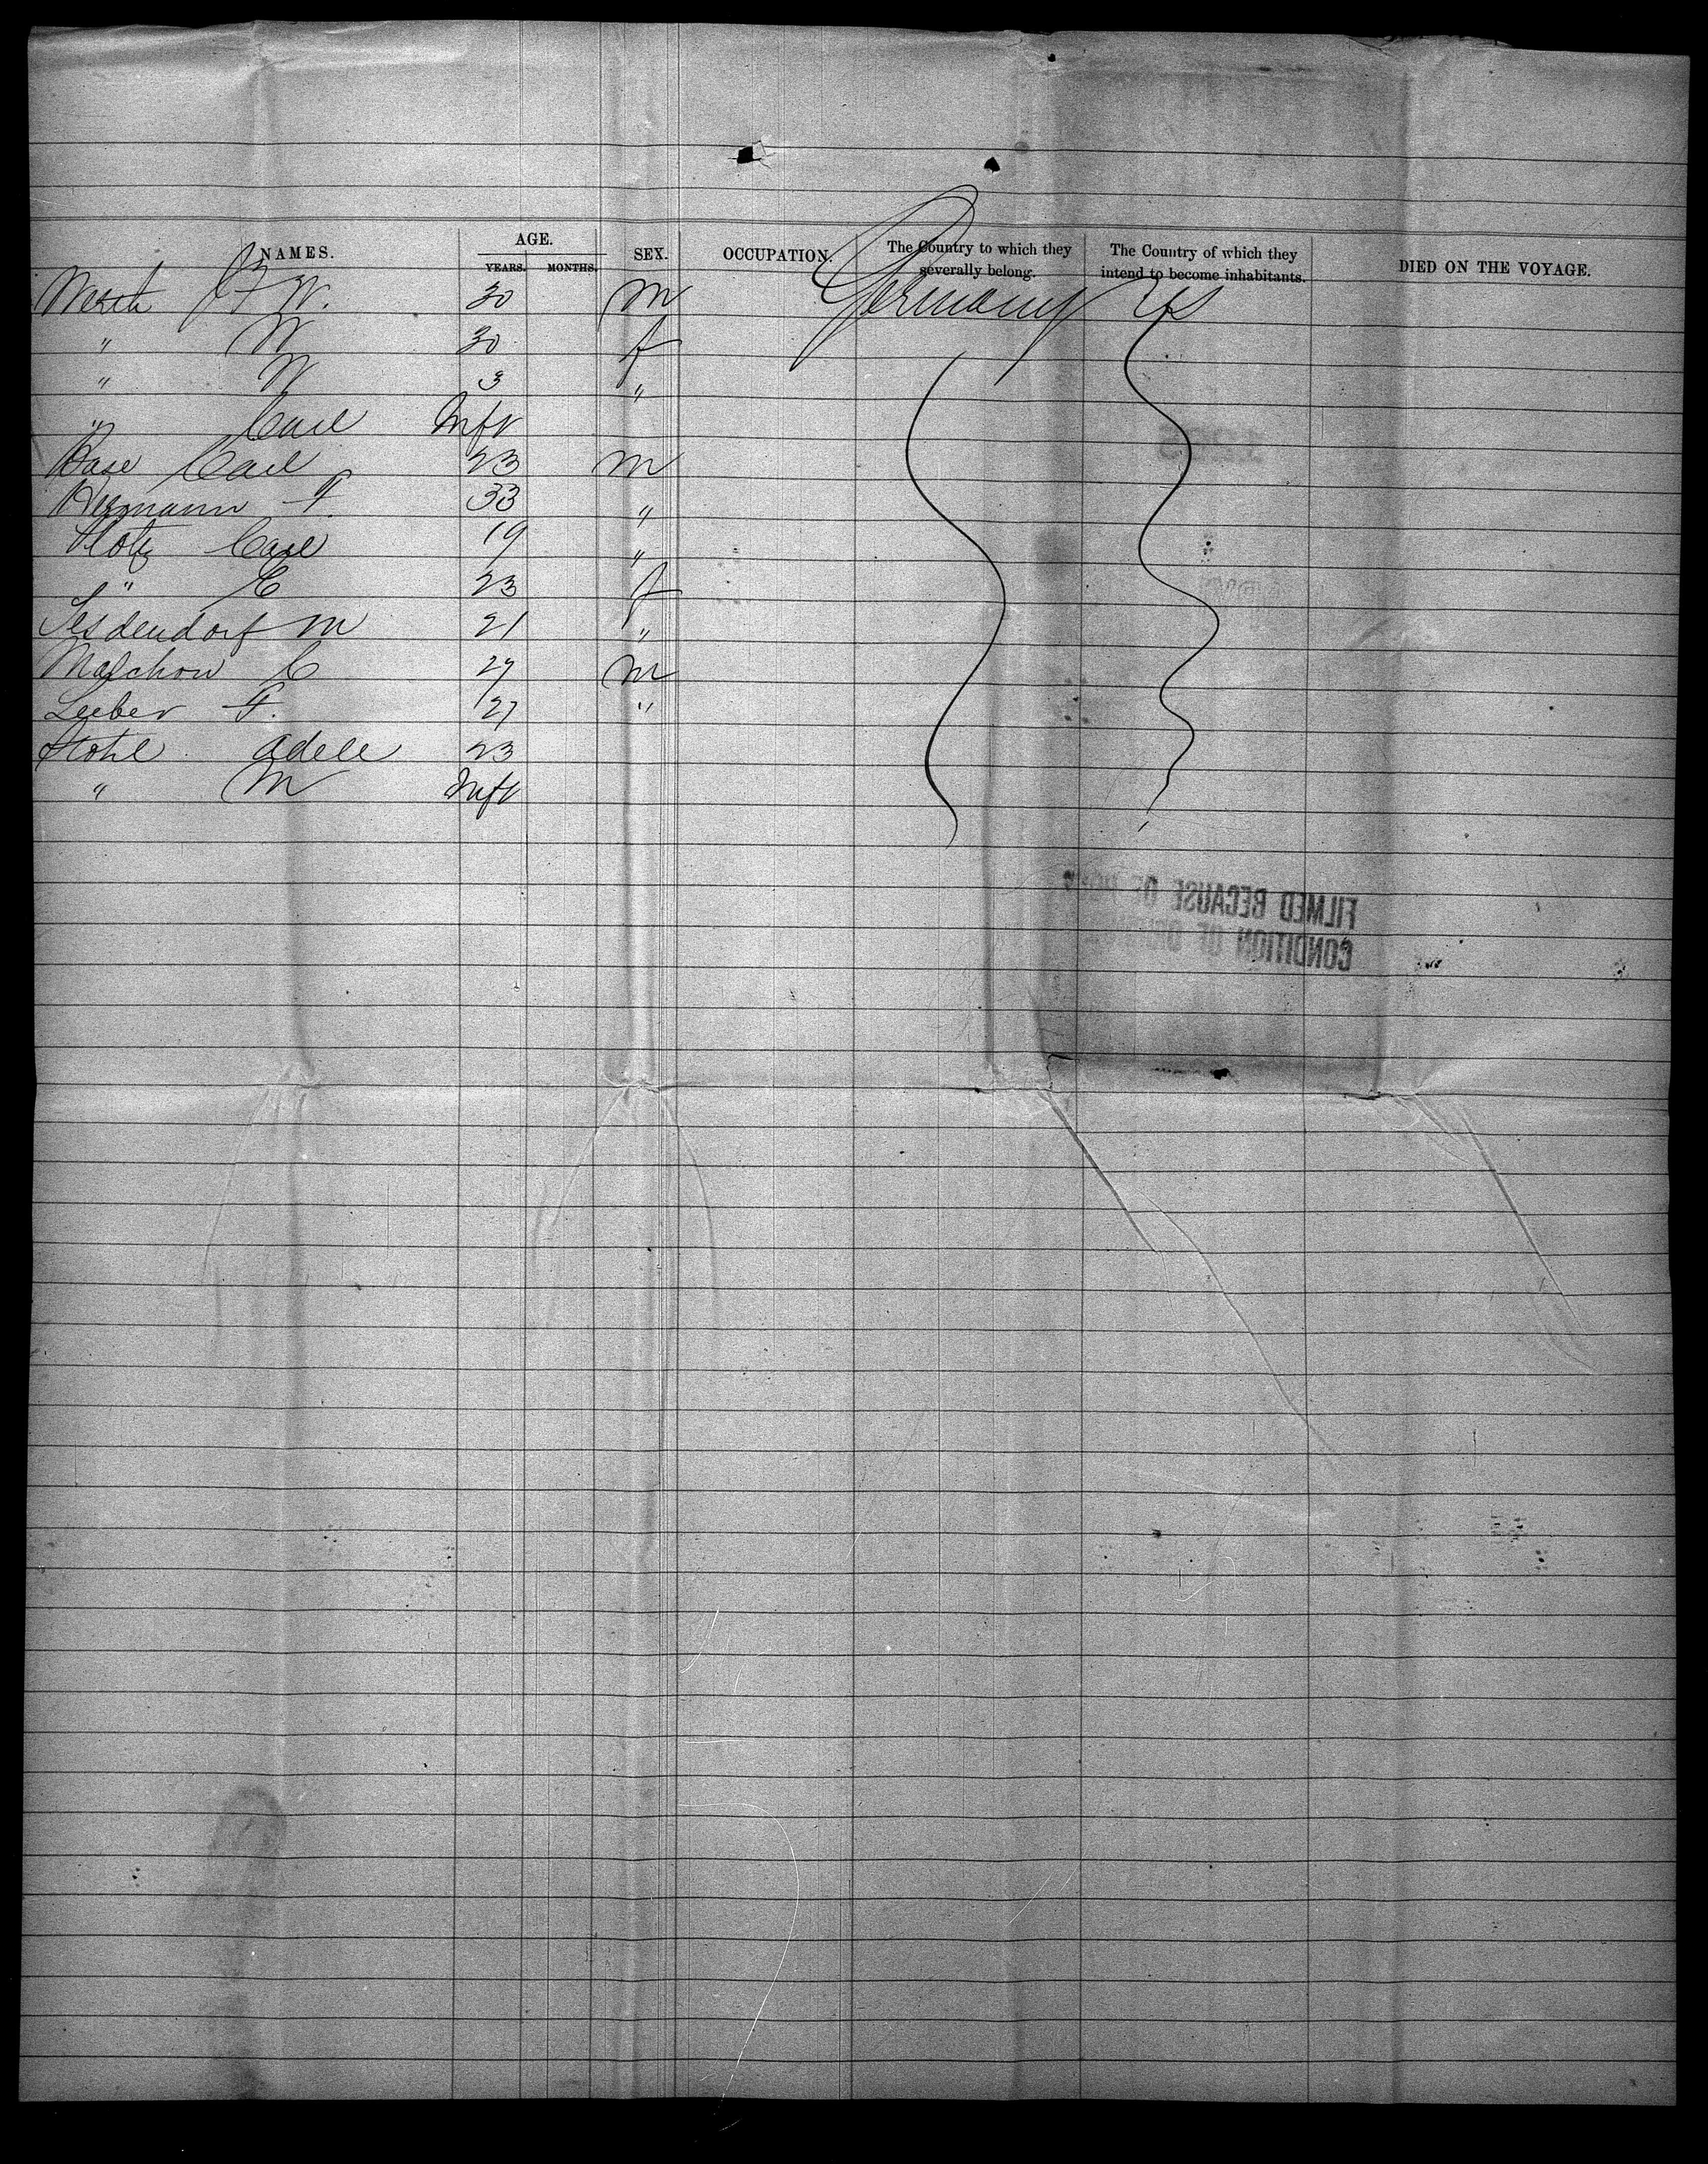 NAMES. AGE. YEARS. MONTHS. SEX. OCCUPATION. The Country to which they severally belong. The Country of which they intend to become inhabitants. DIED ON THE VOYAGE.
W. 30 m Germany US
" W 30 f
" W 3 "
" Carl Inft
Base Carl 23 m
Hermann F. 33 "
Carl 19 "
" C 23 f
m 21 "
Malchow C 29 m
Lieber F. 27 "
Stohl Adele 23
" M Inft
FILMED BECAUSE OF
CONDITION OF